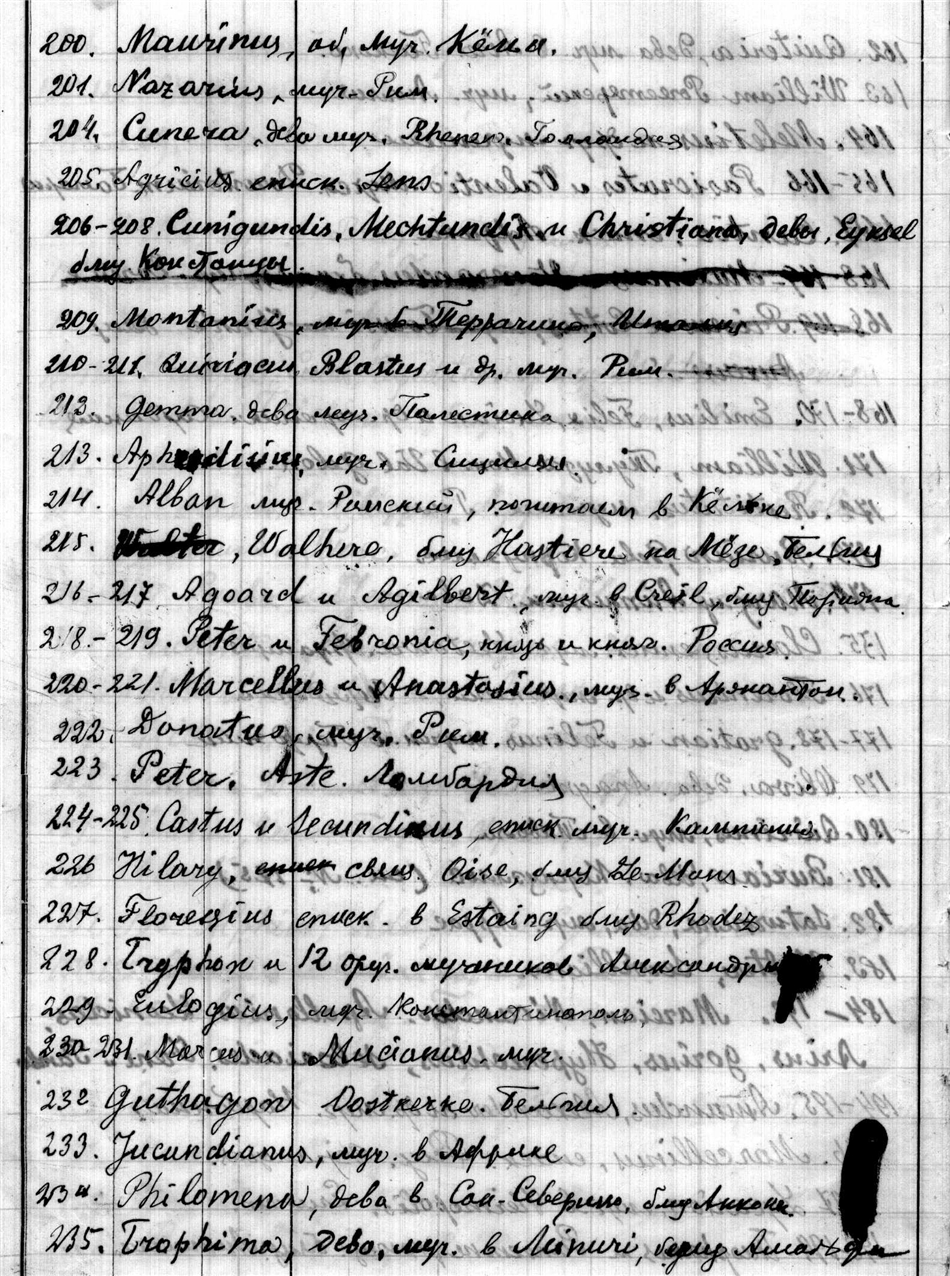 200. Maurinus, аб, муч. Кёльн.
201. Nazarius, муч. Рим.
204. Cunera, дева муч. Rhenen, Голландия
205. Agricius, еписк. Sens
206-208. Cunigundis, Mechtundis и Christiana, девы, Eyksel
близ Констанцы.
209. Montanius, муч. в Террачино, Италия
210-211. Quiriacus Blastus и др. муч. Рим.
212. Gemma, дева муч. Палестина
213. Aphrodisius, муч. Сицилия.
214. Alban муч. Римский, почитаем в Кёльне
215. Walter, Walhere, близ Hastiere на Мёзе, Бельгия
216-217 Agoard и Agilbert, муч. в Creil, близ Парижа.
218.-219. Peter и Febronia, князь и княг. Россия.
220-221. Marcellus и Anastasius, муч. в Аржантон.
222. Donatus, муч. Рим.
223. Peter. Aste. Ломбардия
224-225. Castus и Secundinus, еписк муч. Кампания.
226 Hilary, еписк свящ. Oise, близ Le Mans
227. Floregius еписк. в Estaing близ Rhodez
228. Tryphon и 12 друг. мучеников Александрия
229 Eulogius, муч. Константинополь,
230-231. Marcus и Mucianus. муч.
232 Guthagon Oostkerke. Бельгия.
233. Jucundianus, муч. в Африке
234. Philomena, дева в Сан-Северино, близ Анконы.
235. Trophima, дева, муч. в Minuri, близ Амальфи